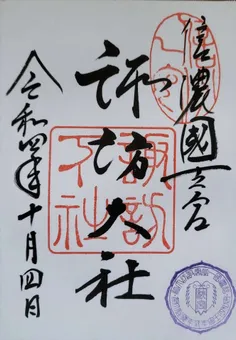 信濃國一之宮
諏訪大社
諏訪
下社
令和四年十月四日